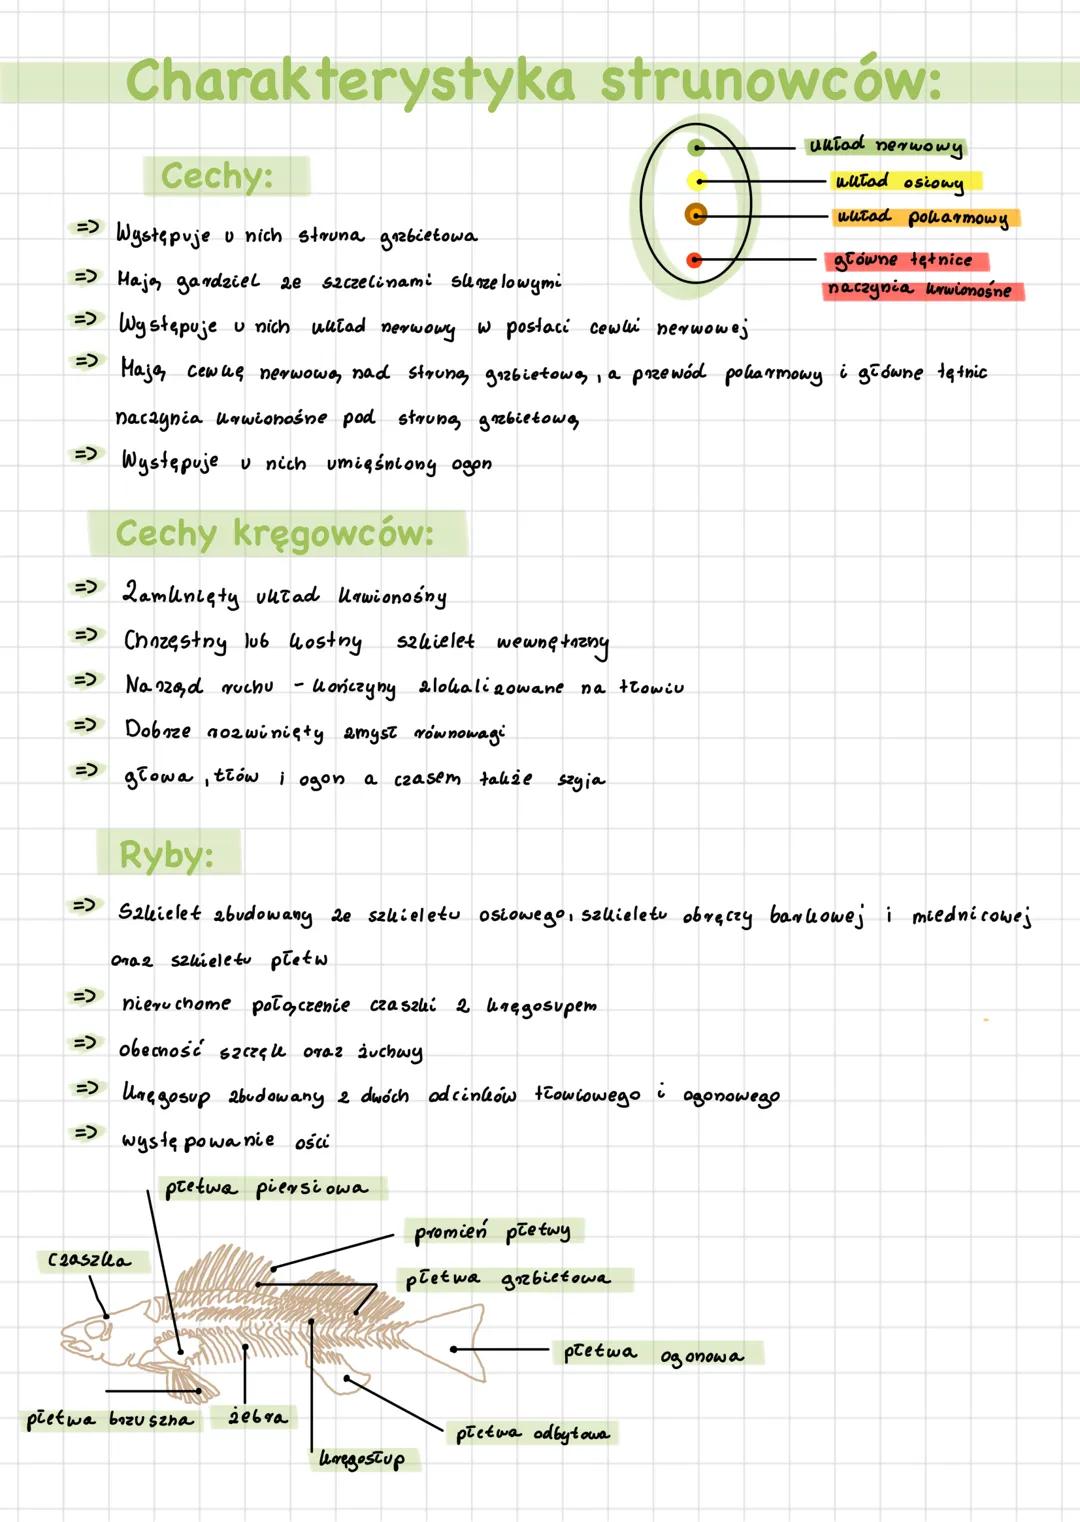 Charakterystyka strunowców:
układ nerwowy
układ osiowy
układ pokarmowy
główne tętnice
naczynia krwionośne
Cechy:
=> Występuje u nich struna grzbietowa
=> Mają gardziel ze szczelinami skrzelowymi
=> Występuje u nich układ nerwowy w postaci cewki nerwowej
=> Mają cewkę nerwową nad struną grzbietową, a przewód pokarmowy i główne tętnic
naczynia krwionośne pod struną grzbietową
=> Występuje u nich umięśniony ogon
Cechy kręgowców:
=> Zamknięty układ krwionośny
=> Chrzęstny lub kostny szkielet wewnętrzny
=> Narząd ruchu - kończyny zlokalizowane na tłowiu
=> Dobrze rozwinięty zmysł równowagi
=> głowa, tłów i ogon a czasem także szyja
Ryby:
=> Szkielet zbudowany ze szkieletu osiowego, szkieletu obręczy barkowej i miednicowej
oraz szkieletu płetw
=> nieruchome połączenie czaszki z kręgosupem
=> obecność szczęk oraz żuchwy
=> kręgosup zbudowany z dwóch odcinków tłowiowego i ogonowego
=> występowanie ości
płetwa piersiowa
promień płetwy
czaszka
płetwa grzbietowa
płetwa ogonowa
płetwa brzuszna
żebra
płetwa odbytowa
kręgosłup